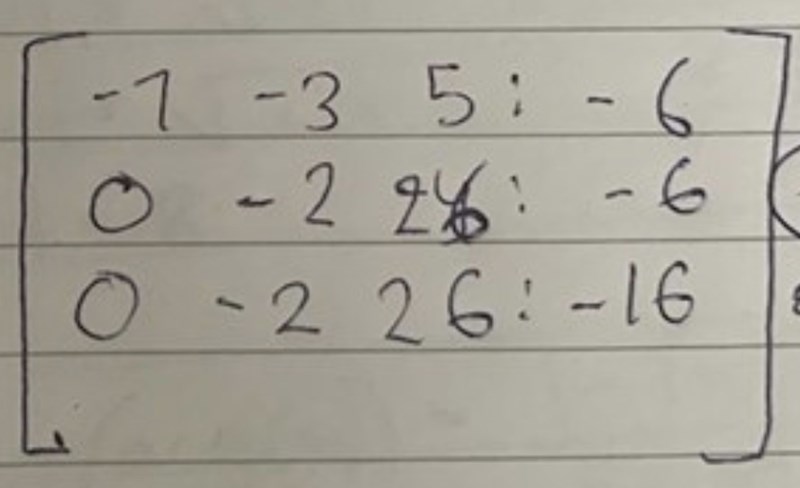 -1 -3 5 : -6
0 -2 26 : -6
0 -2 26 : -16